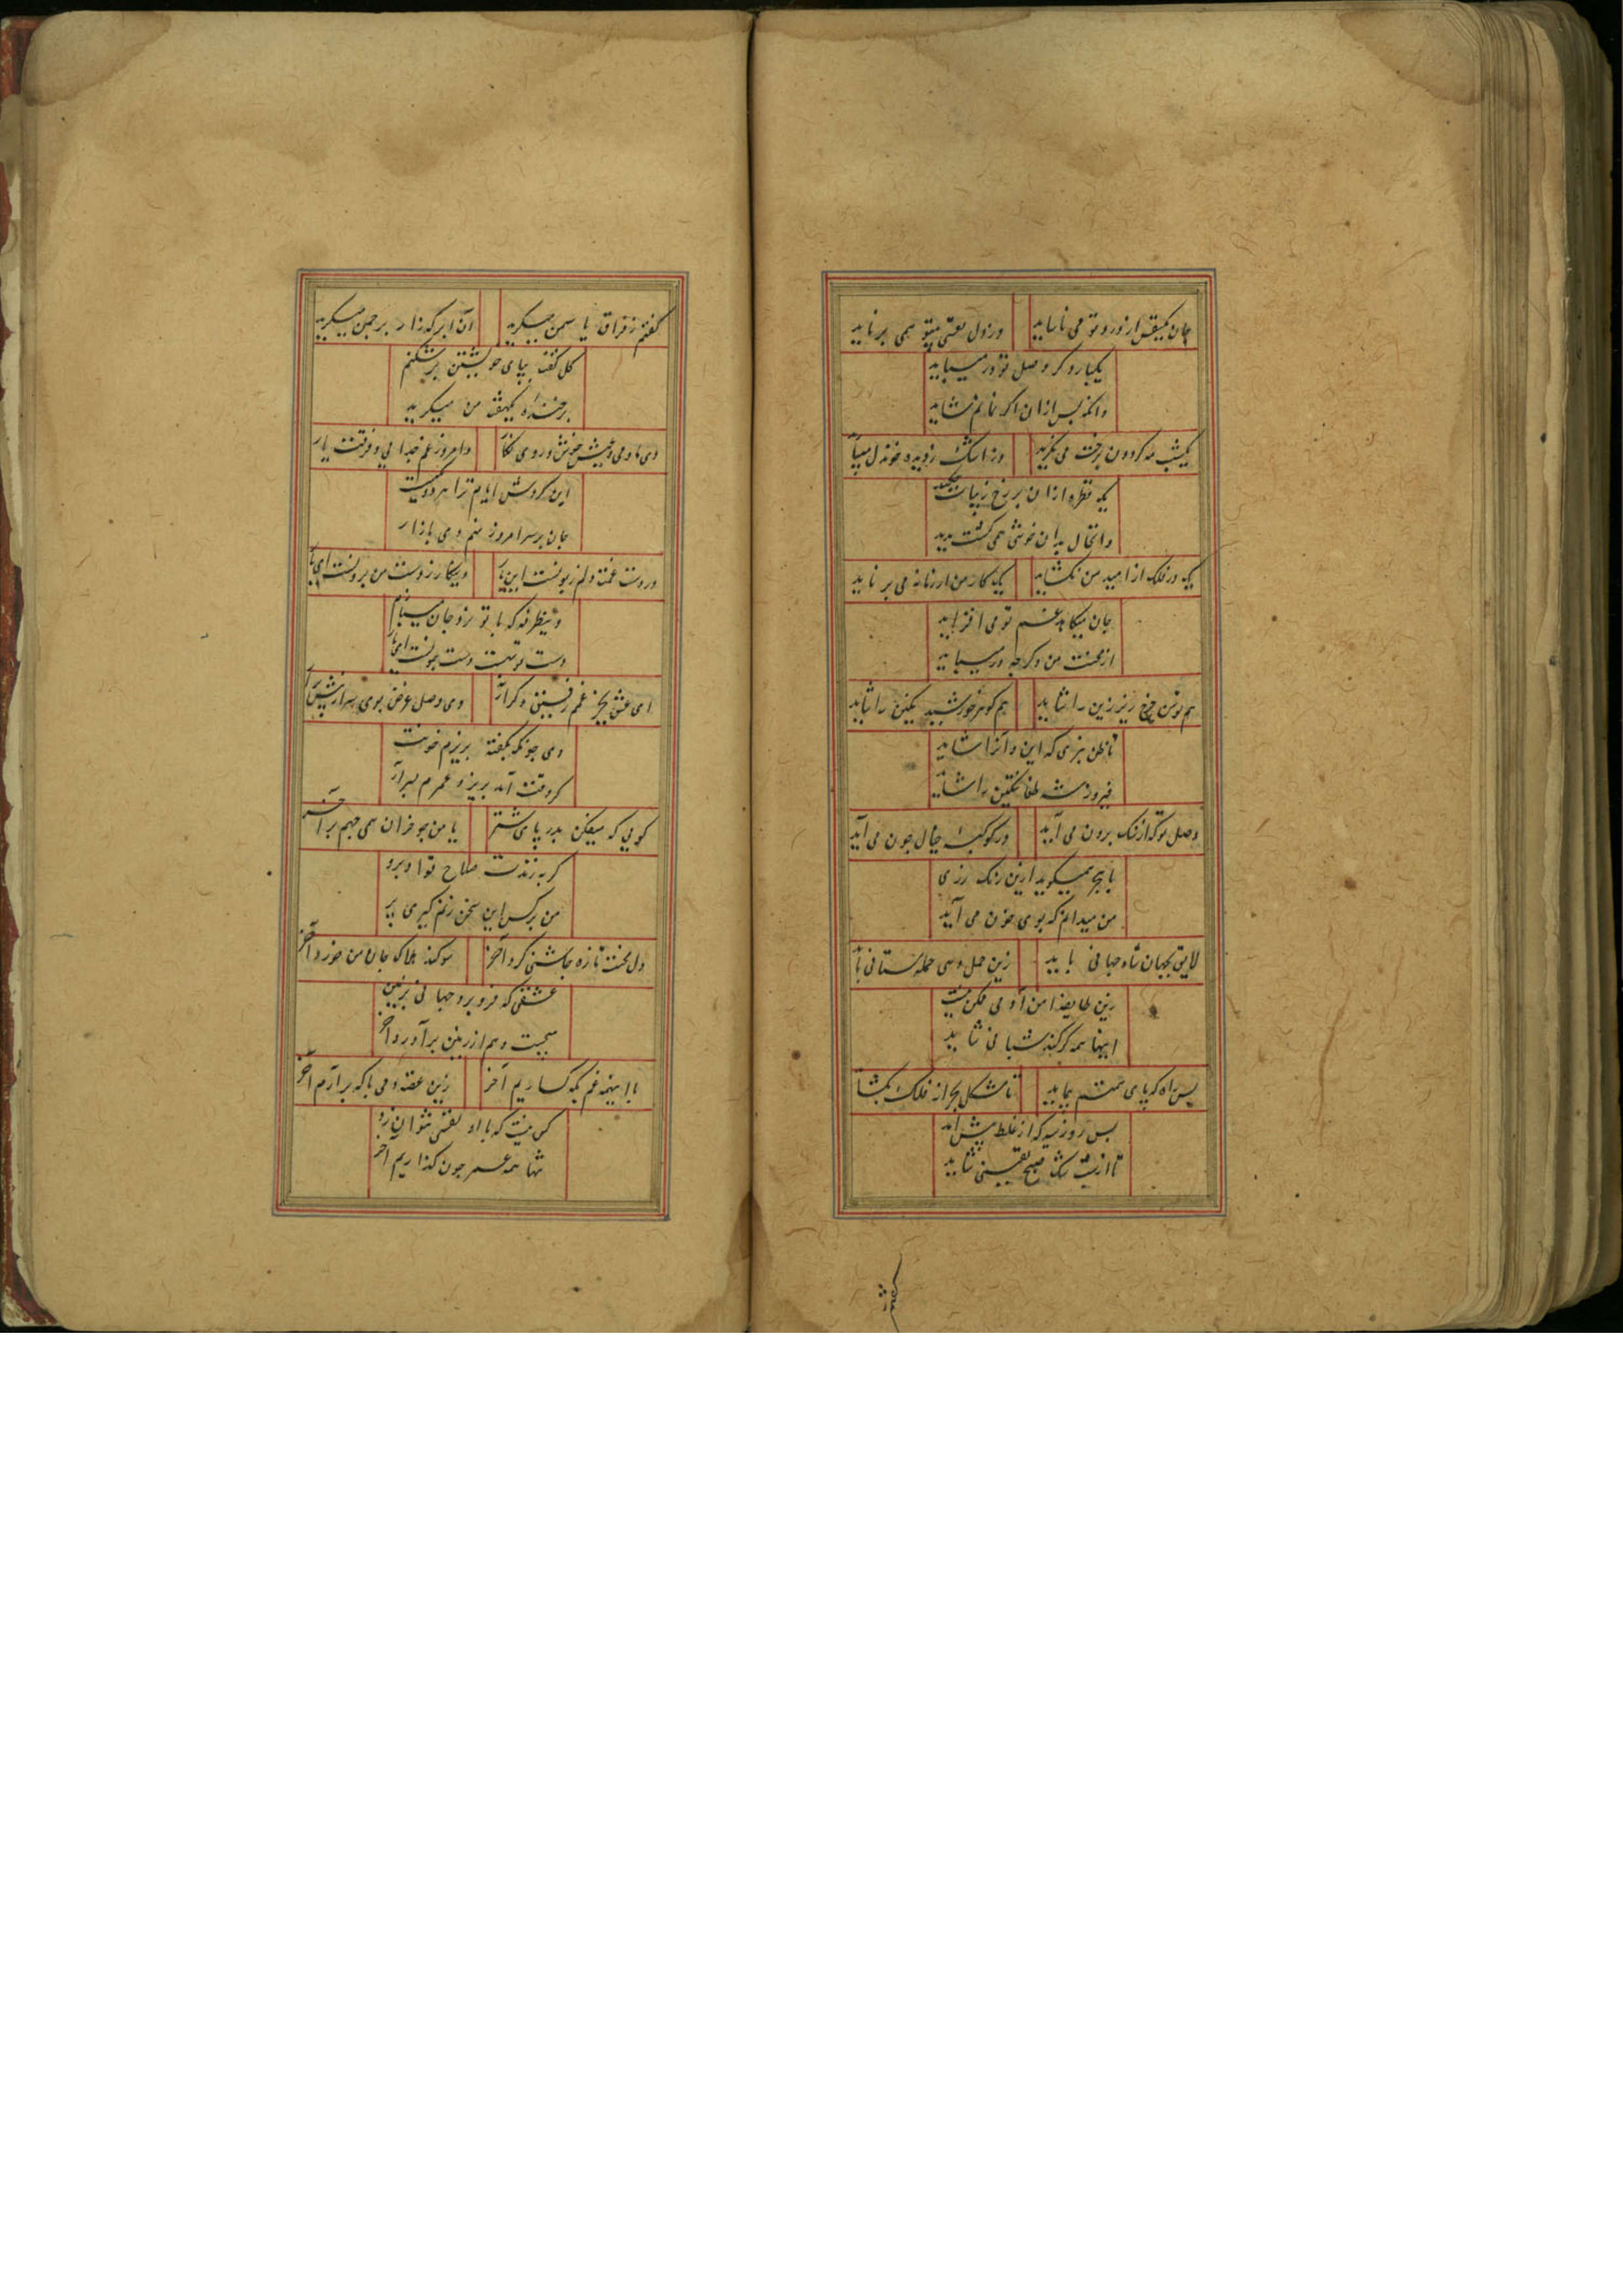 جان یکنفس از درد تو می ناساید
وز دل نفسی بیتو همی برناید
یکباره گر وصل تو در میباید
وانکه پس ازان اگر نمانم شاید
یکشب مه گردون برخت می نگرید
وز اشک ز دیده خون دل
یک قطره ازان بر رخ زیبات چکید
وانخال بدان خوشی همی گشت پدید
یک در فلک از امید من نگشاید
یک کار من از زمانه می برناید
جان میکاهد غم تو می افزاید
از محنت من دگر چه در میباید
هم توسن چرخ زیر زین را شاید
هم گوهر خورشید نگین را شاید
تا ظن نبری که این و آنرا شاید
فیروز شه طغانتکین را شاید
وصل تو که از سنگ برون می آید
در کوکبه خیال چون می آید
با هجر همیگوید ازین رنگ رزی
من میدانم که بوی خون می آید
لایق بجهان شاه جهانی باید
زین حمله ستانی
زین طایفه امن آدمی ممکن نیست
اینها همه گرگند شبانی شاید
بس راه که پای همتم پیماید
تا مشکل بحر از فلک بگشا
بس روز که از غلط پیش آید
تا از شب شک صبح یقینی شاید
گفتم ز فراق یاسمن میگرید
آن ابر که زار بر چمن میگرید
گل گفت بپای خویشتن برشکنم
بر خنده یکهفته من میگرید
دی ما و می و عیش خوش و روی نگار
وامروز غم جدایی و فرقت یار
ای گردش ایام ترا هر دو یکیست
جان بر سر امروز نهم دی باز ار
در دست غمت دلم زبونست این بار
وین کار ز دست من برونست این بار
وین طرفه که با تو نرد جان میبازم
دست تو بهست دست چونست این بار
ای عشق بجز غم رفیقی دگر آر
وی وصل غرض توی سر از پیش برآر
وی چو نکه بگفته بریزم خونت
گر وقت آمد بریز و عمرم بسر آر
گویی که میفکن بدر پای شتر
یا من بحو خزان همی جهم بر آخر
گر به زندت صلاح تو او برو
من برکس این سخن نیم گیری پر
دل محنت تازه چاشنی کرد آخر
سوگند هلاک جان من خورد آخر
عشقی که فرو برد جهانی بزمین
بیخیست و هم از زمین برآورد آخر
با اینهمه غم بکه گساریم آخر
زین غصه دمی باکه برآرم آخر
کس نیست که با او نفسی بتوان زد
تنها همه عمر چون گذاریم آخر